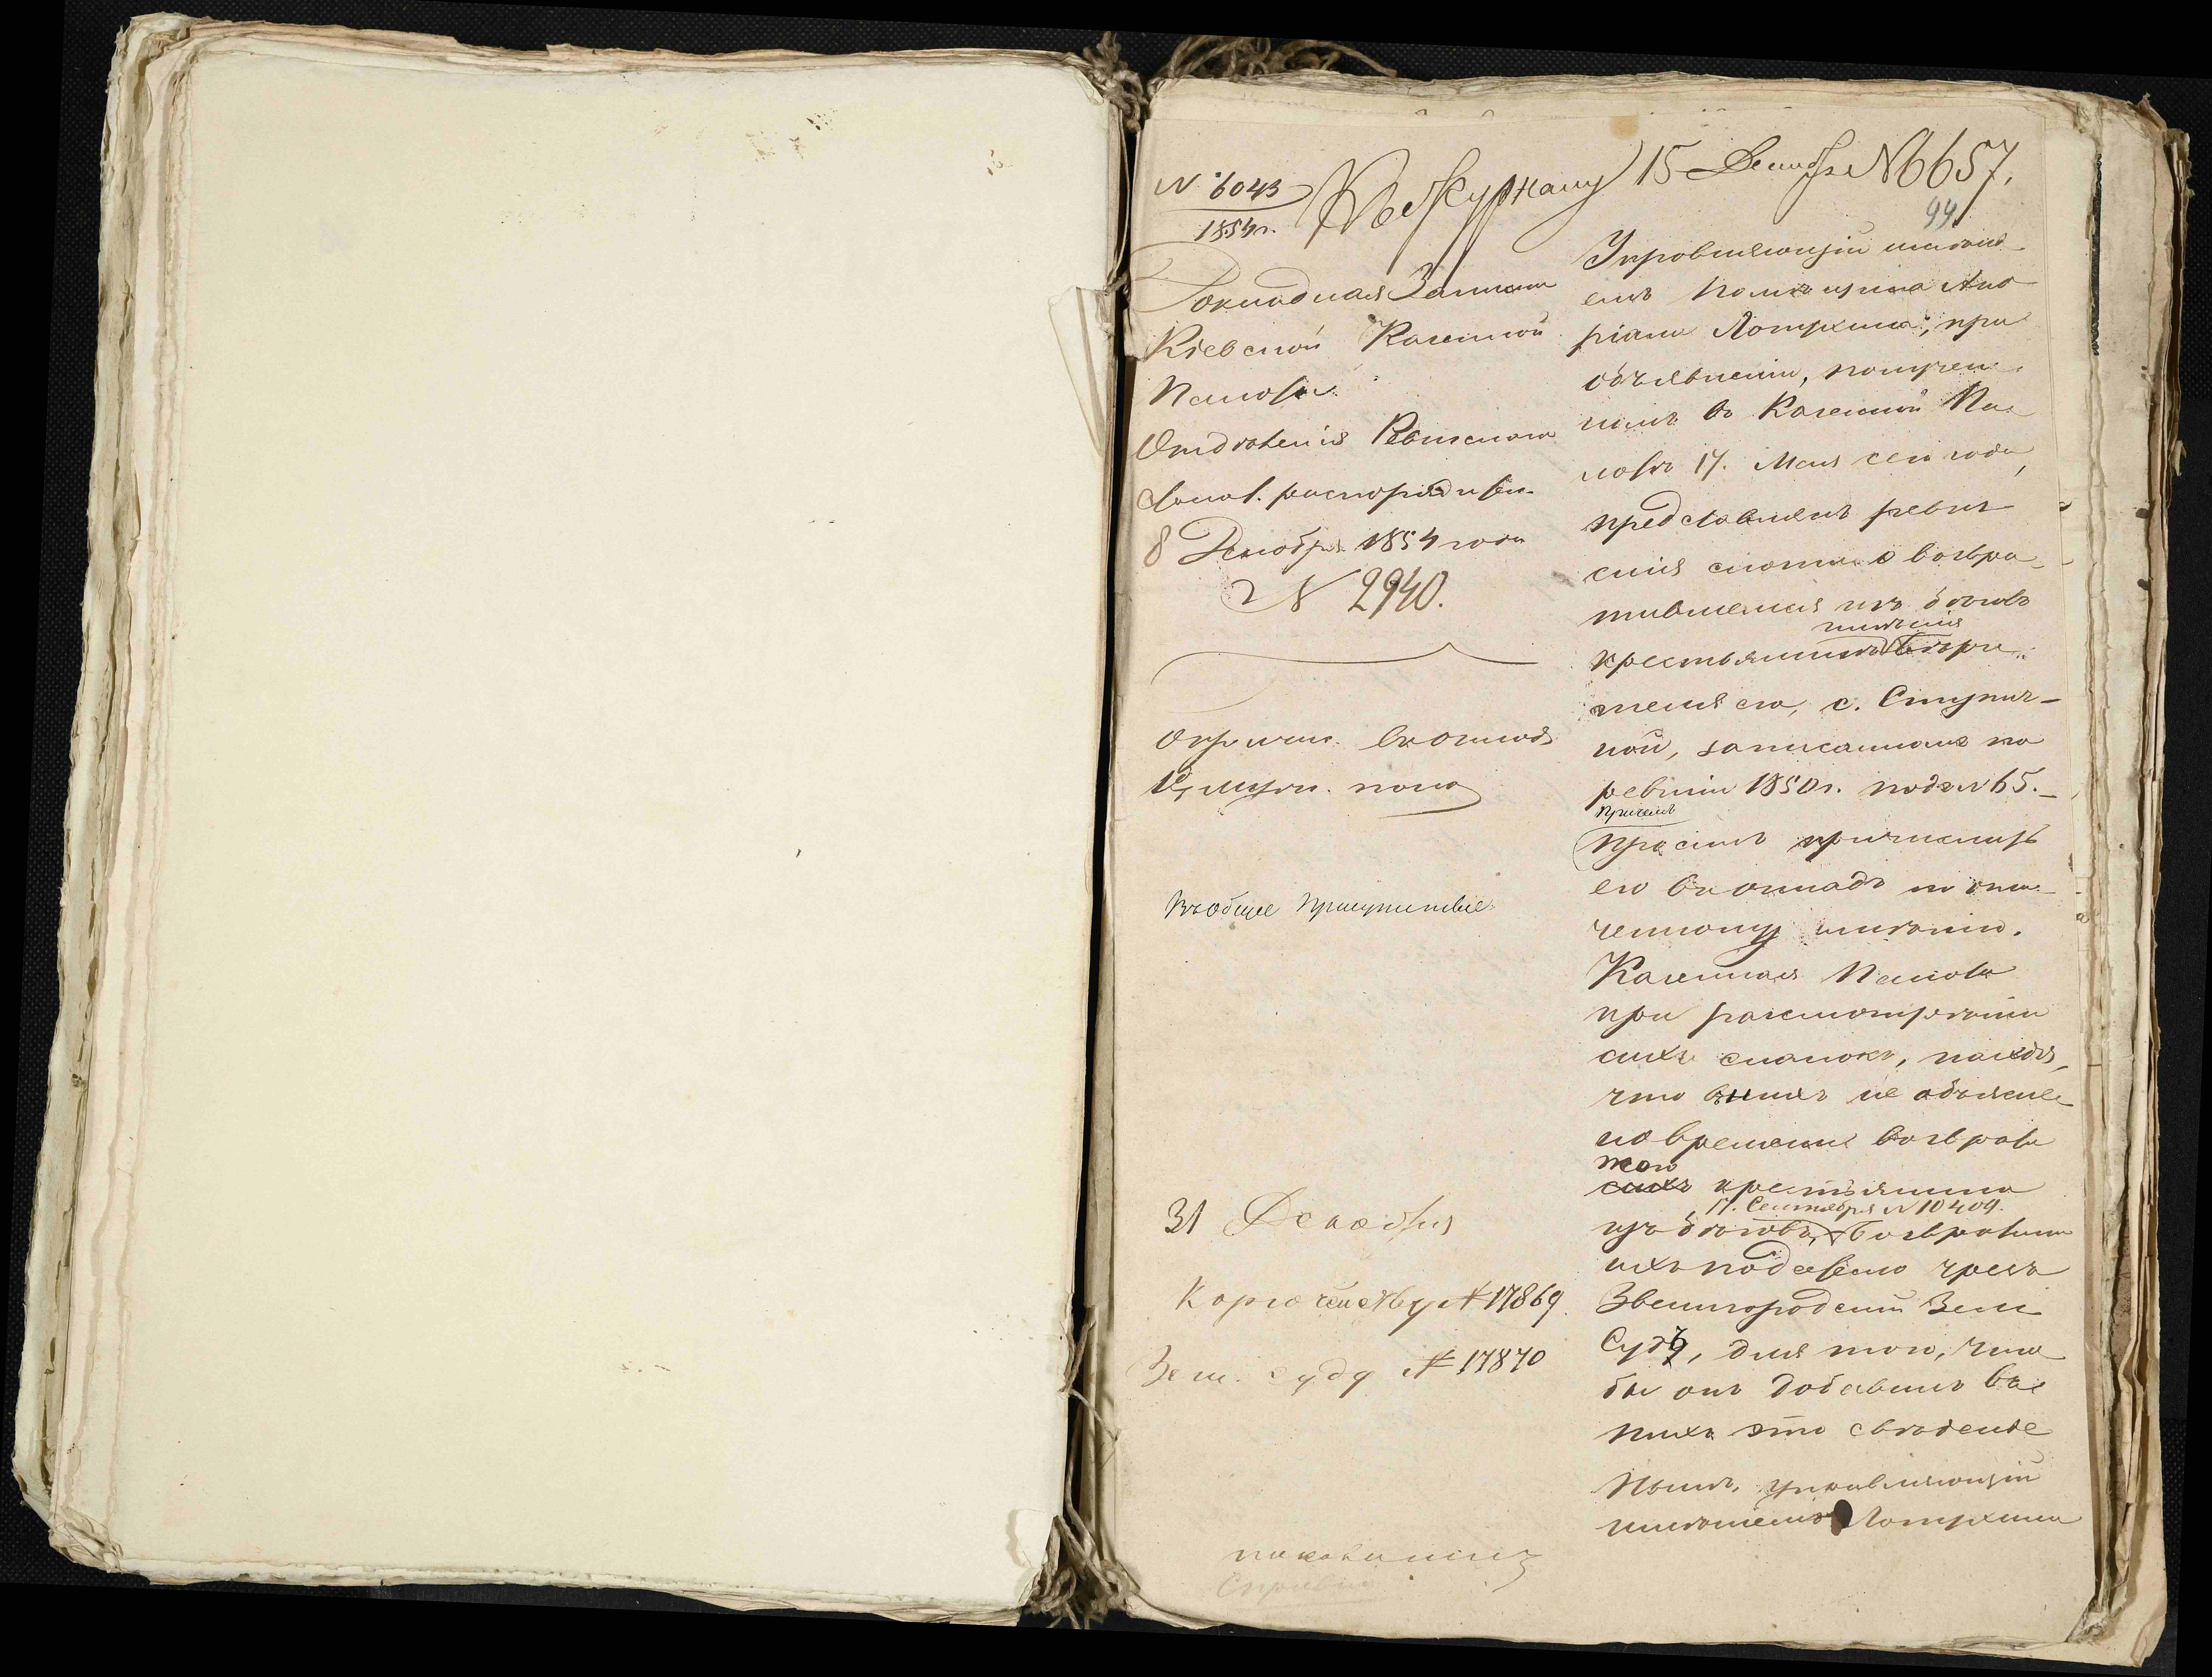 № 6043
1854 г.
Къ Журналу 15 Декабря № 657.
94
Докладная Записка
Кіевской Казенной
Палаты
Отдѣленія Ревизскаго
8 Декабря 1854 года
№ 2940.
въ окладъ
1й полов.
Въ общее Присутствие
31 Декабря
Казначейству № 17869
Зем. суду № 17870
Управляющій имѣні-
емъ помѣщика Ад-
ріана Лопухина, при
объявленіи, получен-
номъ въ Казенной Па-
латѣ 17. Мая сего года,
представилъ ревиз-
скія сказки о возвра-
тившемся изъ бѣговъ
имѣнія
крестьянинѣ вѣри-
теля его, с. Ступич-
ной, записанномъ по
ревизіи 1850 г. подъ № 65.
причемъ
проситъ причислить
его въ окладъ по озна-
ченному имѣнію.
Казенная Палата
при разсмотрѣніи
сихъ сказокъ, найдя,
что въ нихъ не объясне-
но времени возврата
того
сихъ крестьянина
17. Сентября № 10409.
изъ бѣговъ, возвратила
ихъ подателю чрезъ
Звенигородскій Зем.
Судъ, для того, что
бы онъ добавилъ въ
нихъ это свѣденіе
Нынѣ, управляющій
имѣніемъ Лопухина